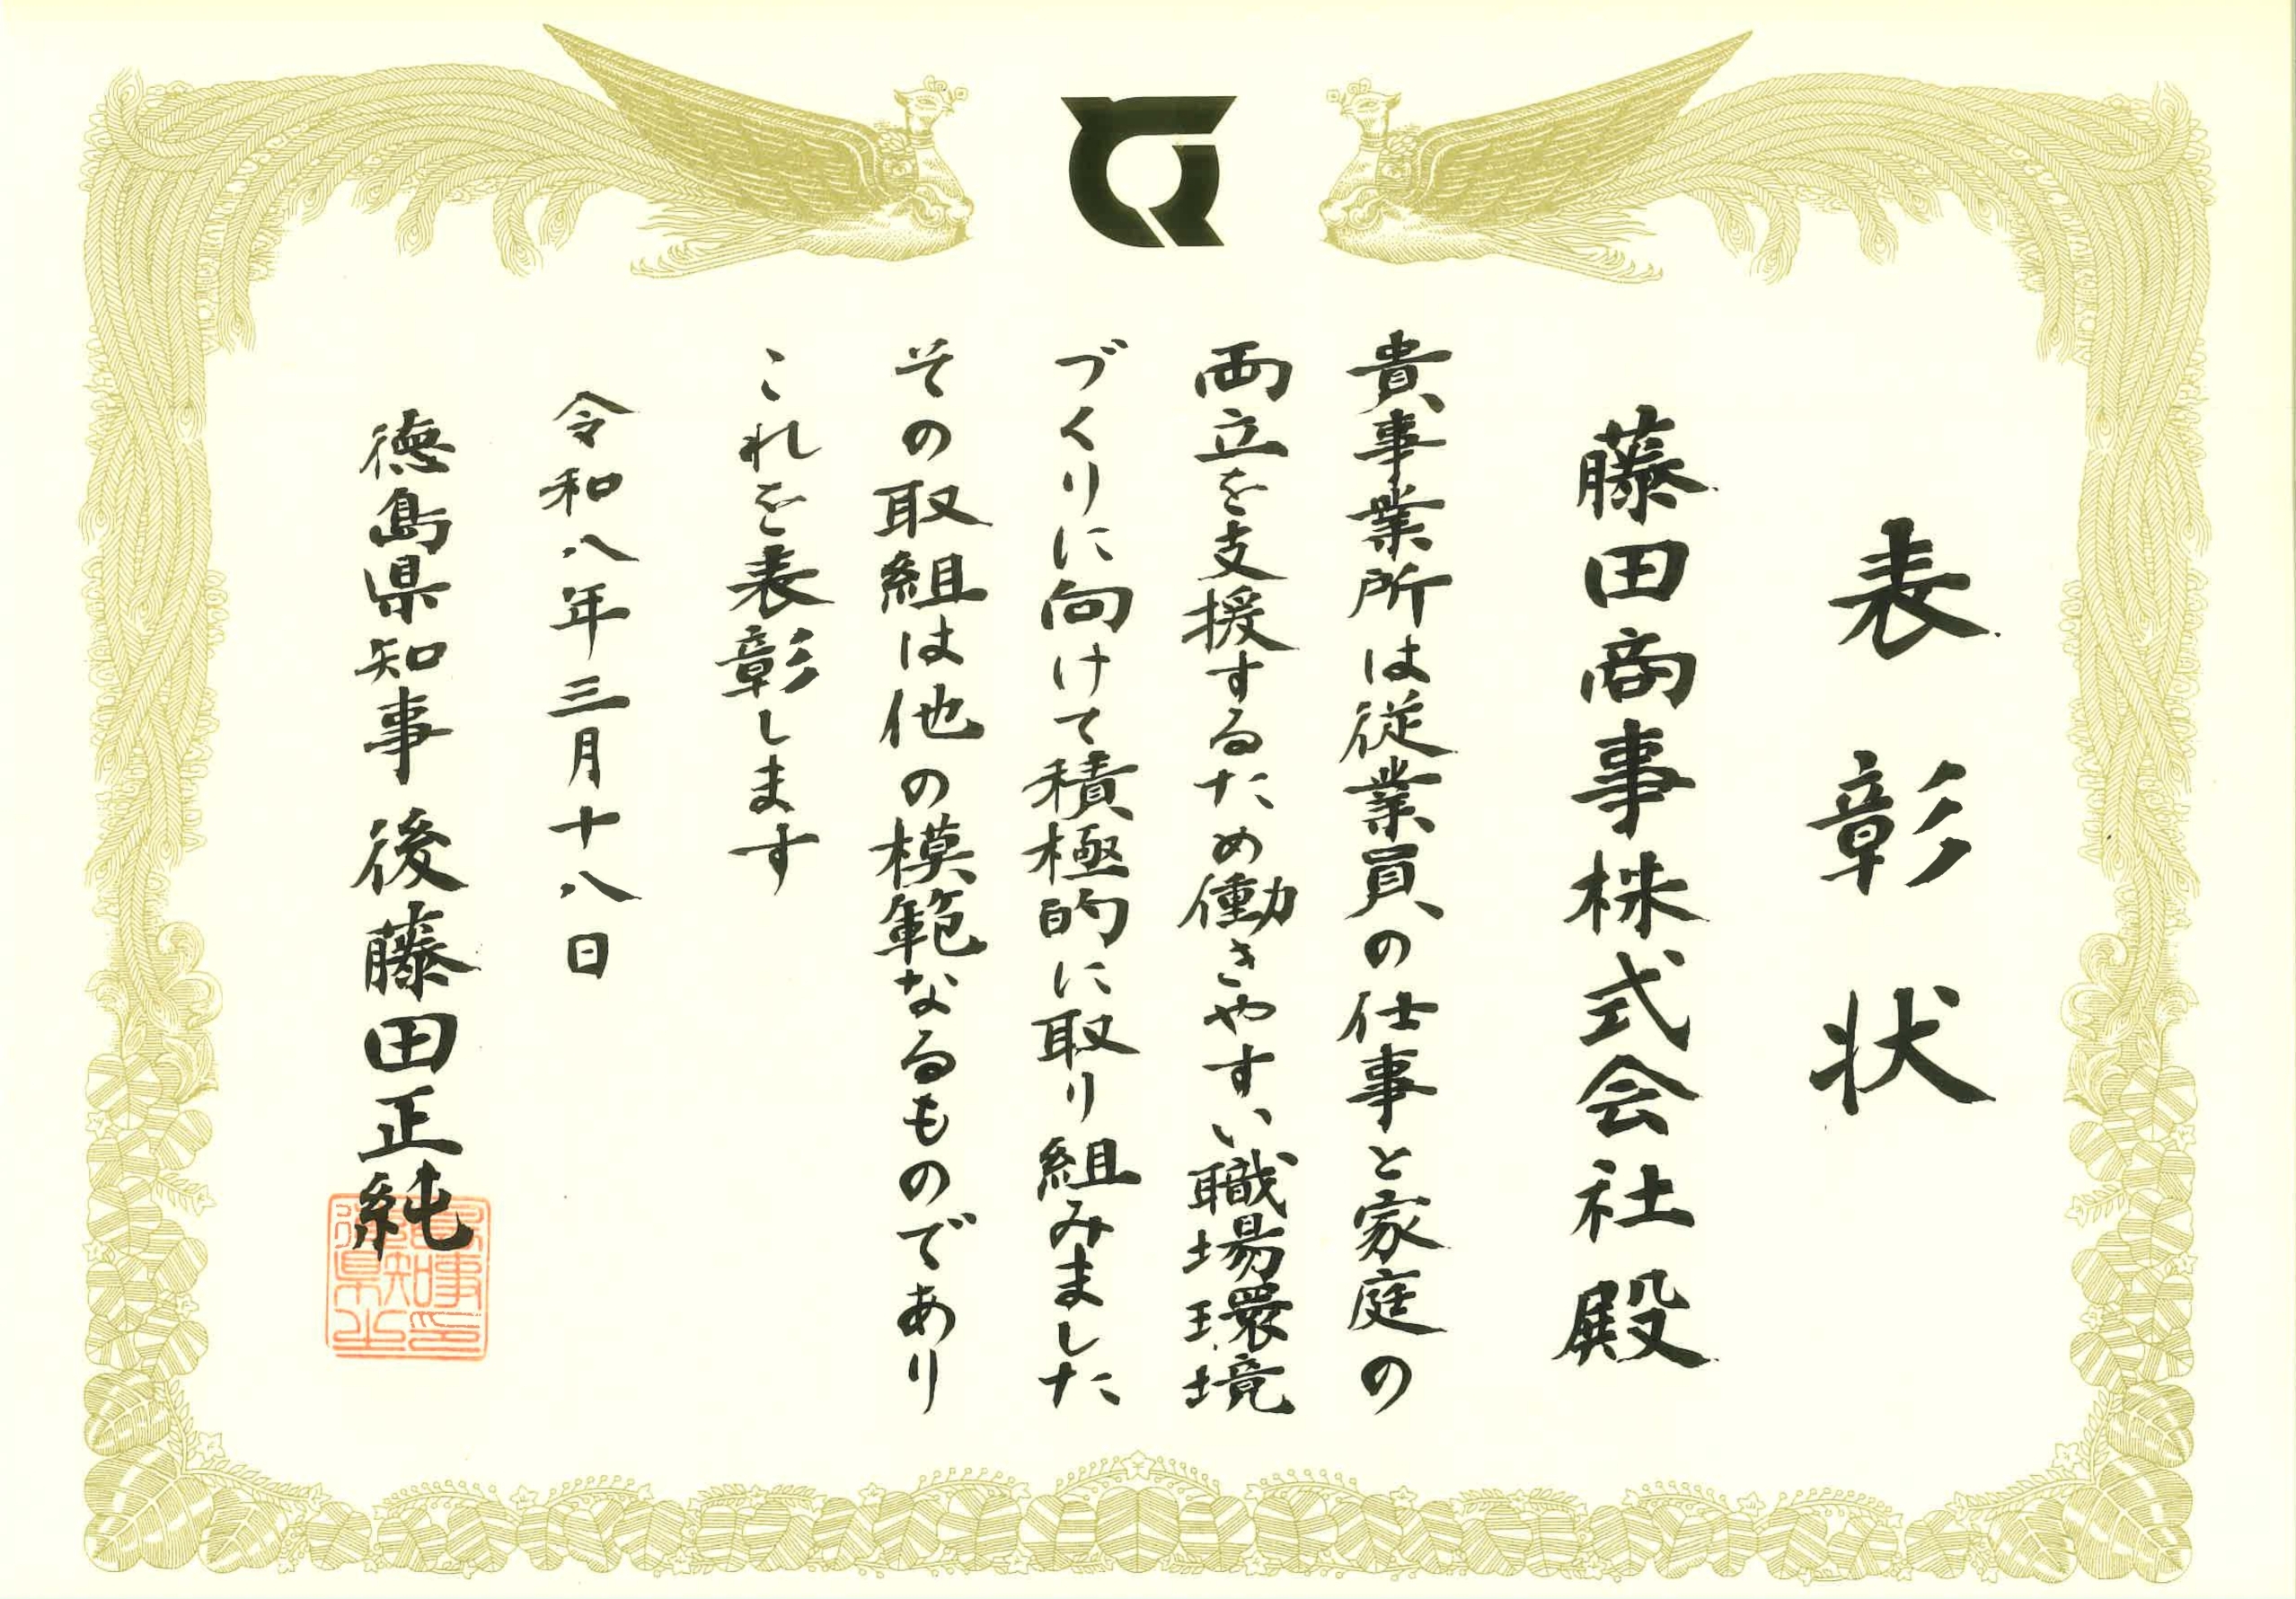 表彰状
藤田商事株式会社殿
貴事業所は従業員の仕事と家庭の
両立を支援するため働きやすい職場環境
づくりに向けて積極的に取り組みました
その取組は他の模範なるものであり
これを表彰します
令和八年三月十八日
徳島県知事 後藤田正純